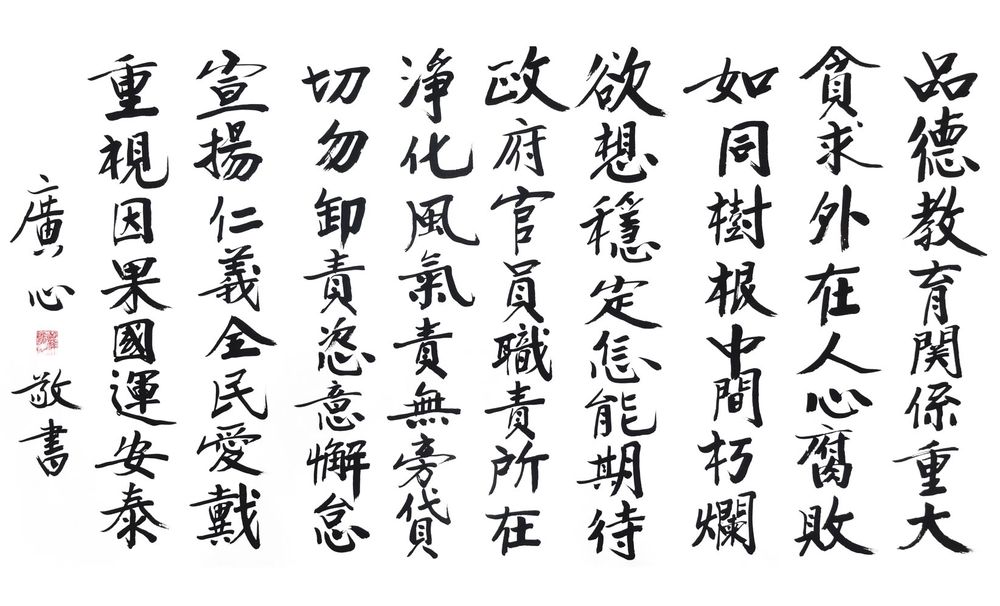 品德教育關係重大
貪求外在人心腐敗
如同樹根中間朽爛
欲想穩定怎能期待
政府官員職責所在
淨化風氣責無旁貸
切勿卸責恣意懈怠
宣揚仁義全民愛戴
重視因果國運安泰
廣心敬書